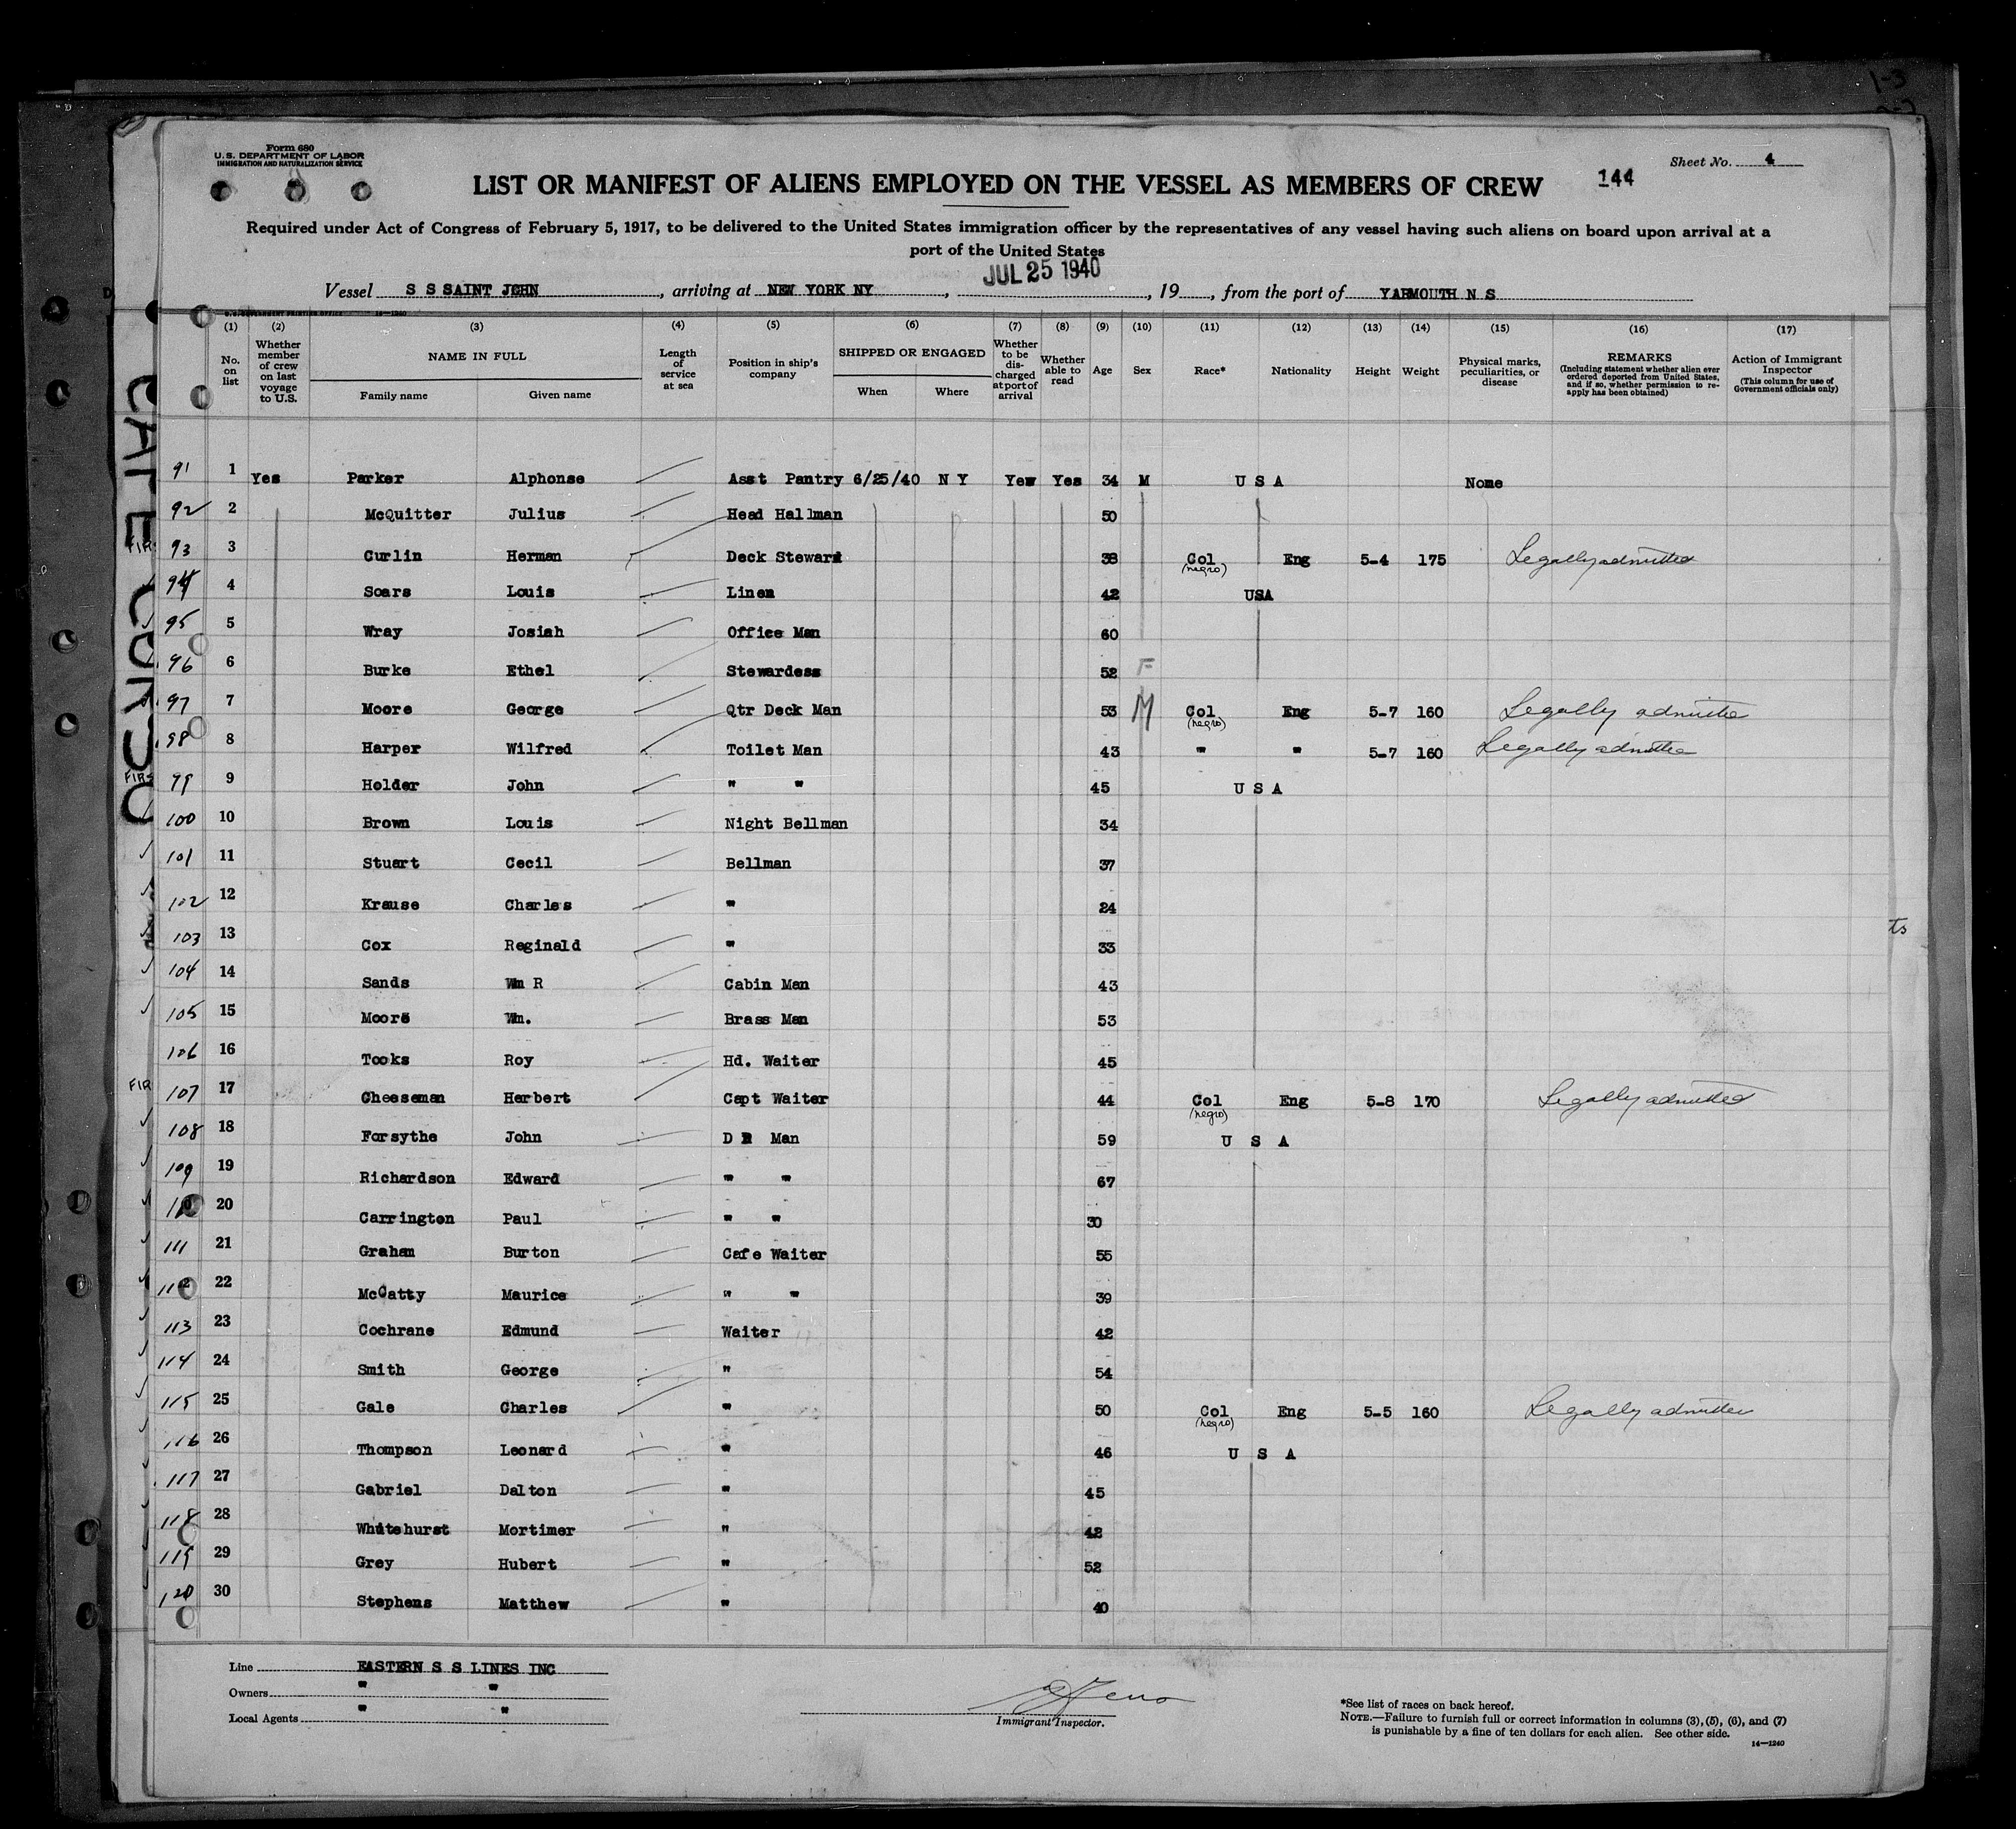 1-3
Form 680
U. S. DEPARTMENT OF LABOR
IMMIGRATION AND NATURALIZATION SERVICE
Sheet No. 4
LIST OR MANIFEST OF ALIENS EMPLOYED ON THE VESSEL AS MEMBERS OF CREW 144
Required under Act of Congress of February 5, 1917, to be delivered to the United States immigration officer by the representatives of any vessel having such aliens on board upon arrival at a
port of the United States
JUL 25 1940
Vessel S S SAINT JOHN, arriving at NEW YORK NY, , 19 , from the port of YARMOUTH N S
(1) (2) (3) (4) (5) (6) (7) (8) (9) (10) (11) (12) (13) (14) (15) (16) (17)
No. on list
Whether member of crew on last voyage to U.S.
NAME IN FULL
Family name Given name
Length of service at sea
Position in ship's company
SHIPPED OR ENGAGED
When Where
Whether to be discharged at port of arrival
Whether able to read
Age
Sex
Race*
Nationality
Height
Weight
Physical marks, peculiarities, or disease
REMARKS
(Including statement whether alien ever ordered deported from United States, and if so, whether permission to re-apply has been obtained)
Action of Immigrant Inspector
(This column for use of Government officials only)
91 1 Yes Parker Alphonse Asst Pantry 6/25/40 N Y Yes Yes 34 M U S A None
92 2 McQuitter Julius Head Hallman 50
FIR 93 3 Curlin Herman Deck Steward 38 Col (negro) Eng 5-4 175 Legally admitted
94 4 Soars Louis Linen 42 USA
95 5 Wray Josiah Office Man 60
96 6 Burke Ethel Stewardess 52 F
97 7 Moore George Qtr Deck Man 53 M Col (negro) Eng 5-7 160 Legally admitted
98 8 Harper Wilfred Toilet Man 43 " " 5-7 160 Legally admitted
FIRS 99 9 Holder John " " 45 U S A
100 10 Brown Louis Night Bellman 34
101 11 Stuart Cecil Bellman 37
102 12 Krause Charles " 24
103 13 Cox Reginald " 33
104 14 Sands Wm R Cabin Man 43
105 15 Moore Wm. Brass Man 53
106 16 Tooks Roy Hd. Waiter 45
FIR 107 17 Cheeseman Herbert Capt Waiter 44 Col (negro) Eng 5-8 170 Legally admitted
108 18 Forsythe John D R Man 59 U S A
109 19 Richardson Edward " " 67
110 20 Carrington Paul " " 30
111 21 Graham Burton Cafe Waiter 55
112 22 McCatty Maurice " " 39
113 23 Cochrane Edmund Waiter 42
114 24 Smith George " 54
115 25 Gale Charles " 50 Col (negro) Eng 5-5 160 Legally admitted
116 26 Thompson Leonard " 46 U S A
117 27 Gabriel Dalton " 45
118 28 Whitehurst Mortimer " 42
119 29 Grey Hubert " 52
120 30 Stephens Matthew " 40
Line EASTERN S S LINES INC
Owners " "
Local Agents " "
Immigrant Inspector.
*See list of races on back hereof.
NOTE.—Failure to furnish full or correct information in columns (3), (5), (6), and (7)
is punishable by a fine of ten dollars for each alien. See other side.
14—1240